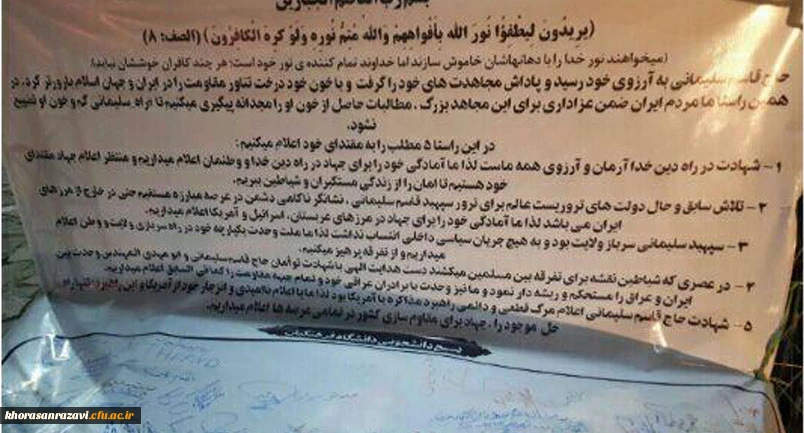 بسم رب القاصم الجبارین
(یریدُونَ لیطفِؤا نُورَ الله بِأفواهِهِمْ وَاللهُ مُتِمُّ نُورِهِ وَلَوْ کَرِهَ الْکافِرُونَ) (الصف: ۸)
(میخواهند نور خدا را با دهانهاشان خاموش سازند اما خداوند تمام کننده ی نور خود است؛ هر چند کافران خوششان نیاید)
حاج قاسم سلیمانی به آرزوی خود رسید و پاداش مجاهدت های خود را گرفت و با خون خود درخت تناور مقاومت را در ایران و جهان اسلام بارورتر کرد. در
همین راستا ما مردم ایران ضمن عزاداری برای این مجاهد بزرگ ، مطالبات حاصل از خون او را مجدانه پیگیری میکنیم تا راه سلیمانی گم و خون او تضییع
نشود.
در این راستا ۵ مطلب را به مقتدای خود اعلام میکنیم:
۱- شهادت در راه دین خدا آرمان و آرزوی همه ماست لذا ما آمادگی خود را برای جهاد در راه دین خدا و وطنمان اعلام میداریم و منتظر اعلام جهاد مقتدای
خود هستیم تا امان را از زندگی مستکبران و شیاطین ببریم.
۲- تلاش سابق و حال دولت های تروریست عالم برای ترور سپهبد قاسم سلیمانی ، نشانگر ناکامی دشمن در عرصه مبارزه مستقیم حتی در خارج از مرزهای
ایران می باشد لذا ما آمادگی خود را برای جهاد در مرزهای عربستان، اسرائیل و آمریکا اعلام میداریم.
۳- سپهبد سلیمانی سرباز ولایت بود و به هیچ جریان سیاسی داخلی انتساب نداشت لذا ما ملت وحدت یکپارچه خود در راه سربازی ولایت و وطن اعلام
میداریم و از تفرقه پرهیز میکنیم.
۴- در عصری که شیاطین نقشه برای تفرقه بین مسلمین میکشند دست هدایت الهی با شهادت توأمان حاج قاسم سلیمانی و ابو مهدی المهندس وحدت بین
ایران و عراق را مستحکم و ریشه دار نمود و ما نیز وحدت با برادران عراقی خود و تمام جبهه مقاومت را کما فی السابق اعلام میداریم.
۵- شهادت حاج قاسم سلیمانی اعلام مرگ قطعی و دائمی راهبرد مذاکره با آمریکا بود لذا ما با اعلام ناامیدی و انزجار خود از آمریکا و این راهبرد، تنها راه
حل موجود را ، جهاد برای مقاوم سازی کشور در تمامی عرصه ها اعلام میداریم.
بسیج دانشجویی دانشگاه فرهنگیان
khorasanrazavi.cfu.ac.ir